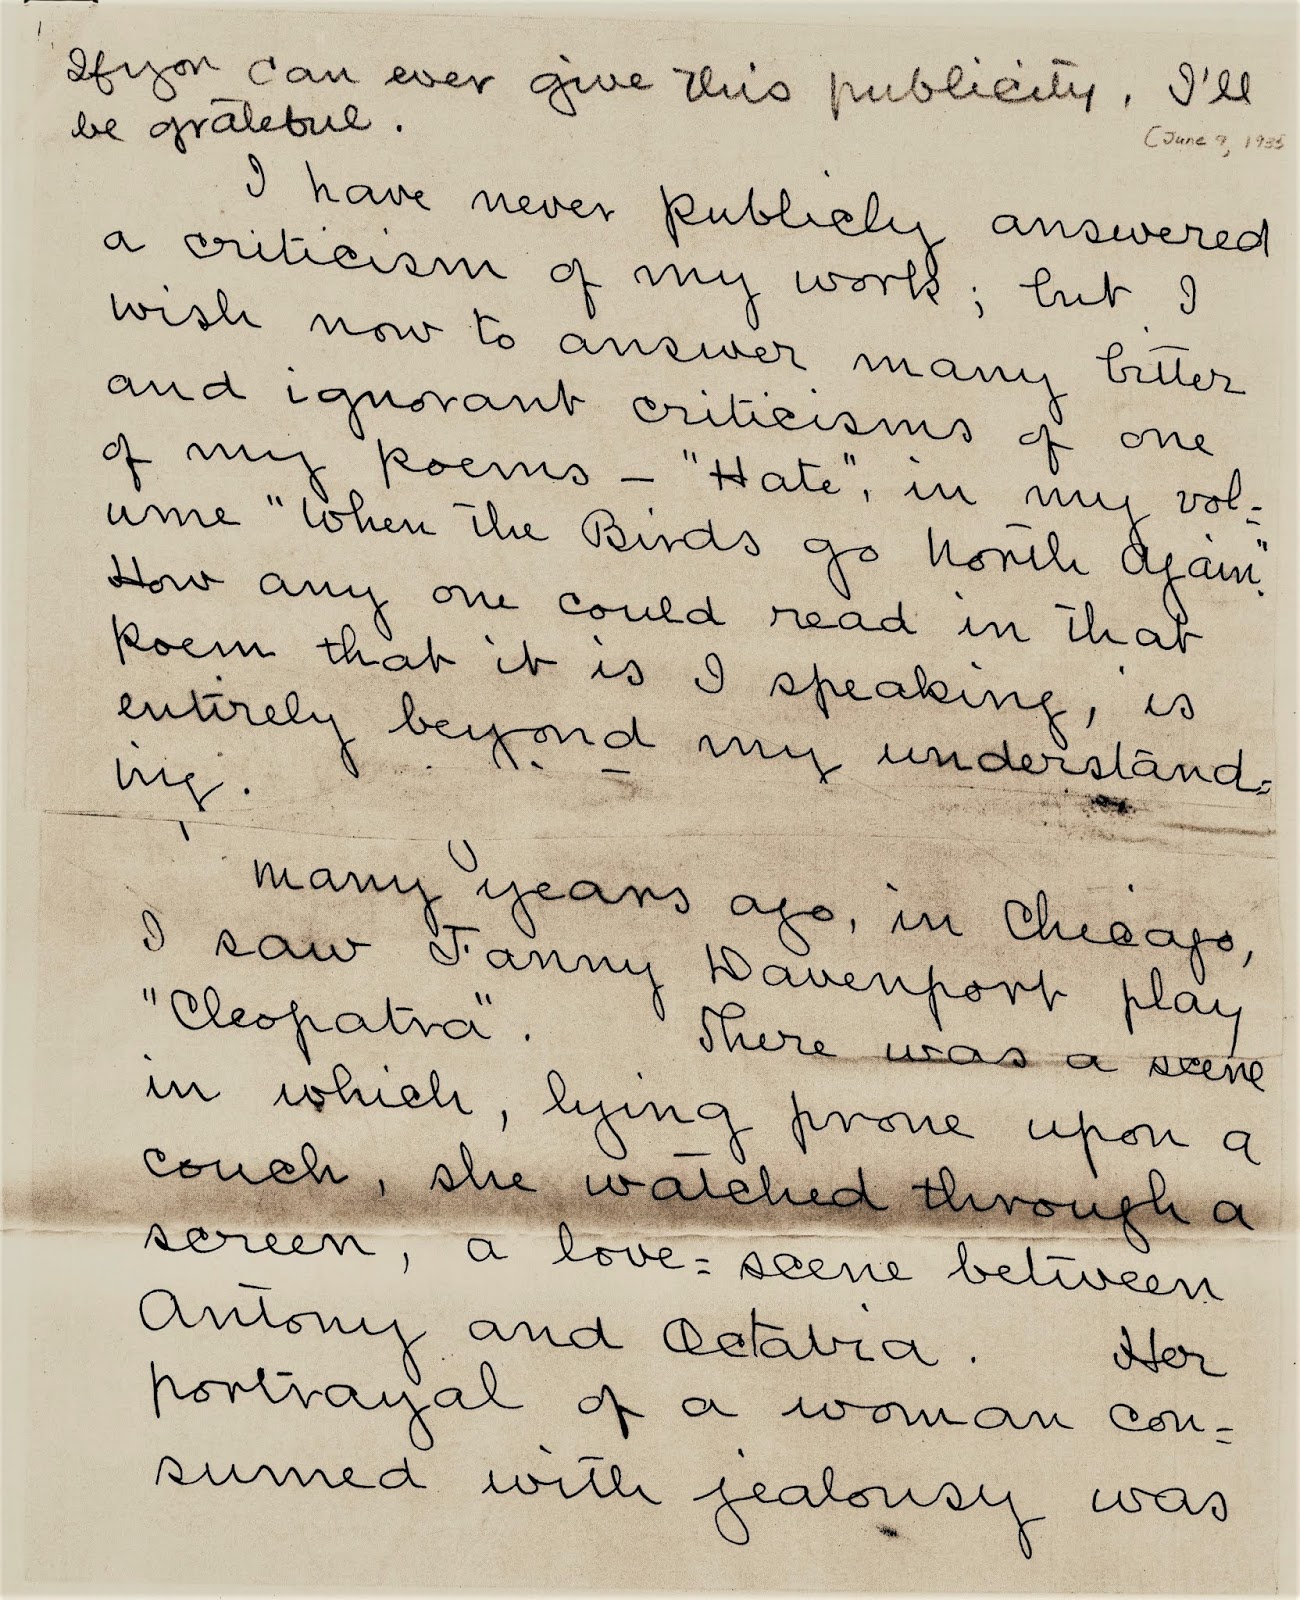 If you can ever give this publicity, I'll
be grateful.
(June 9, 1935
I have never publicly answered
a criticism of my work; but I
wish now to answer many bitter
and ignorant criticisms of one
of my poems — "Hate", in my vol=
ume "When the Birds go North Again".
How any one could read in that
poem that it is I speaking, is
entirely beyond my understand=
ing.
Many years ago, in Chicago,
I saw Fanny Davenport play
"Cleopatra". There was a scene
in which, lying prone upon a
couch, she watched through a
screen, a love=scene between
Antony and Octavia. Her
portrayal of a woman con=
sumed with jealousy was